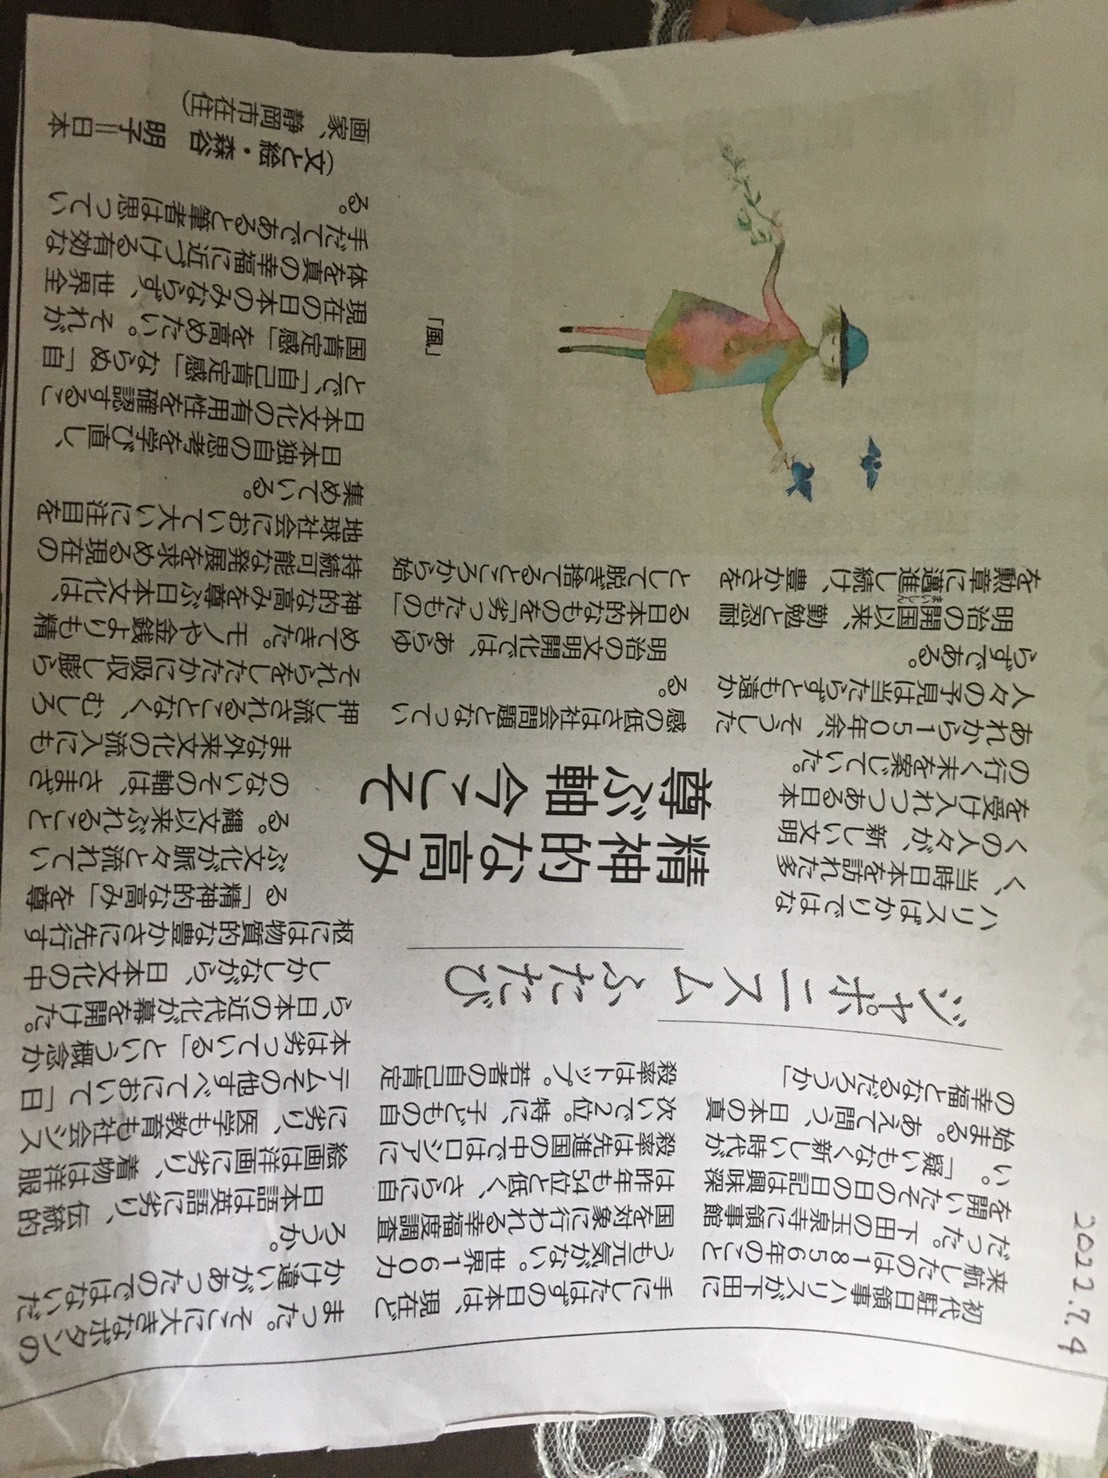 2022.7.4
ジャポニスム ふたたび
精神的な高み
尊ぶ軸 今こそ
初代駐日領事ハリスが下田に
来航したのは1856年のこと
だった。下田の玉泉寺に領事館
を開いたその日の日記は興味深
い。「疑いもなく新しい時代が
始まる。あえて問う、日本の真
の幸福となるだろうか」
ハリスばかりではな
く、当時日本を訪れた多
くの人々が、新しい文明
を受け入れつつある日本
の行く末を案じていた。
あれから150年余、そうした
人々の予見は当たらずとも遠か
らずである。
明治の開国以来、勤勉と忍耐
を勲章に邁進(まいしん)し続け、豊かさを
手にしたはずの日本は、現在ど
うも元気がない。世界160カ
国を対象に行われる幸福度調査
は昨年も54位と低く、さらに自
殺率は先進国の中ではロシアに
次いで2位。特に、子どもの自
殺率はトップ。若者の自己肯定
感の低さは社会問題となってい
る。
明治の文明開化では、あらゆ
る日本的なものを「劣ったもの」
として脱ぎ捨てるところから始
まった。そこに大きなボタンの
かけ違いがあったのではないだ
ろうか。
日本語は英語に劣り、伝統的
絵画は洋画に劣り、着物は洋服
に劣り、医学も教育も社会シス
テムその他すべてにおいて「日
本は劣っている」という概念か
ら、日本の近代化が幕を開けた。
しかしながら、日本文化の中
枢には物質的な豊かさに先行す
る「精神的な高み」を尊
ぶ文化が脈々と流れてい
る。縄文以来ぶれること
のないその軸は、さまざ
まな外来文化の流入にも
押し流されることなく、むしろ
それらをしたたかに吸収し膨ら
めてきた。モノや金銭よりも精
神的な高みを尊ぶ日本文化は、
持続可能な発展を求める現在の
地球社会において大いに注目を
集めている。
日本独自の思考を学び直し、
日本文化の有用性を確認するこ
とで、「自己肯定感」ならぬ「自
国肯定感」を高めたい。それが
現在の日本のみならず、世界全
体を真の幸福に近づける有効な
手だてであると筆者は思ってい
る。
(文と絵・森谷 明子=日本
画家、静岡市在住)
「風」